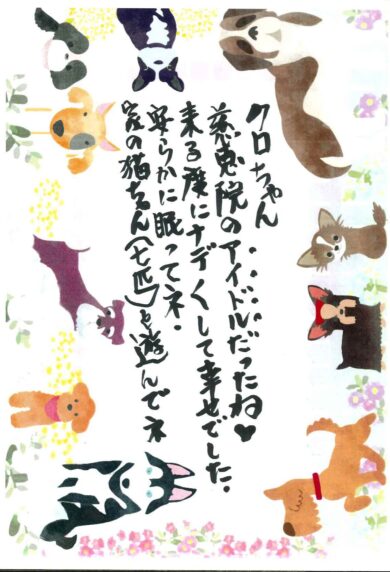 クロちゃん
慈恵院のアイドルだったね♥
来る度にナデくして幸せでした.
安らかに眠ってネ.
家の猫ちゃん(七匹)と遊んでネ